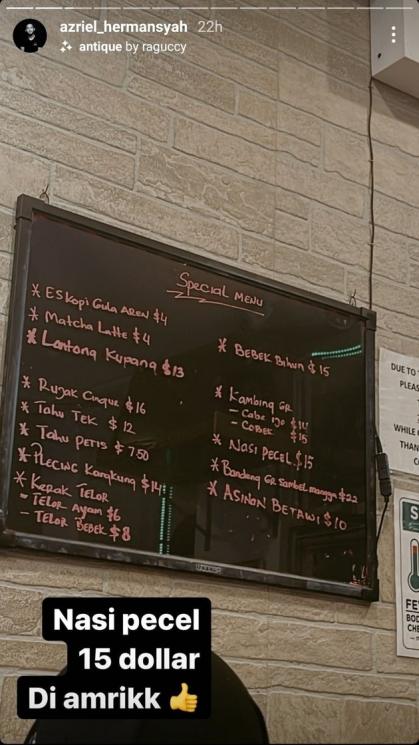 azriel_hermansyah 22h
antique by raguccy
Special MENU
* ES Kopi Gula AREN $4
* Matcha Latte $4
* Lontong Kupang $13
* Rujak Cingue $16
* Tahu TEK $12
* Tahu PETIS $750
* PLECING Kangkung $14
* Kerak TELOR
- TELOR Ayam $6
- TELOR BEBEK $8
* BEBEK Bihun $15
* Kambing GR
- Cabe
- COBEK $15
* NASI PECEL $15
* Bandeng GR Sambel mangga $22
* ASINAN BETAWI $10
DUE TO
PLEAS
WHILE
THAN
S
FE
BOD
CHE
Nasi pecel
15 dollar
Di amrikk 👍